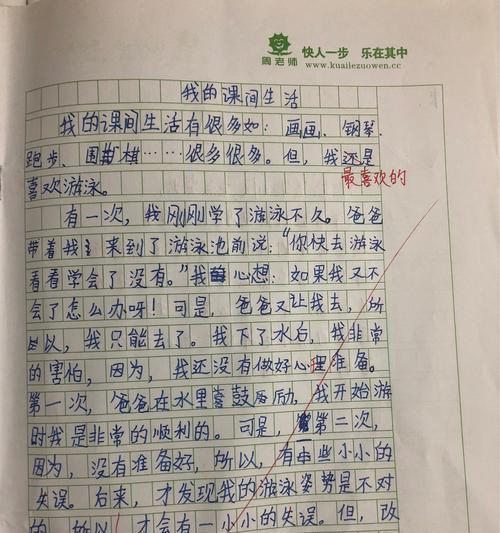 快人一步 乐在其中
周老师
www.kuailezuowen.cc
我的课间生活
我的课间生活有很多如：画画、钢琴、
跑步、围棋……很多很多。但，我还是
最喜欢的
喜欢游泳。
有一次，我刚刚学了游泳不久。爸爸
带着我来到了游泳池前说：“你快去游泳
看看学会了没有。”我心想：如果我又不
会了怎么办呀！可是，爸爸又让我去，所
以，我只能去了。我下了水后，我非常
的害怕，因为，我还没有做好心理准备。
第一次，爸爸在水里喜鼓励，我开始游
时我是非常的顺利的。可是，第二次，
因为，没有准备好，所以，有些小小的
失误。后来，才发现我的游泳姿势是不对
的，所以，才会有一小小的失误。但，改